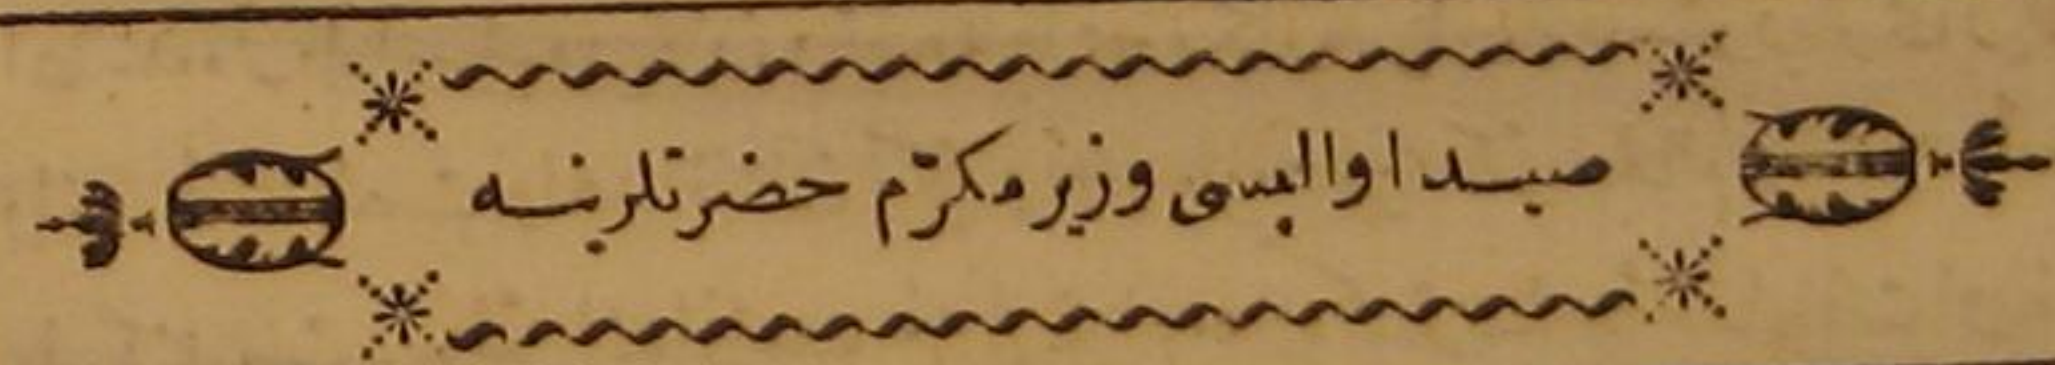 صيدا والیسی وزیر مكرّم حضرتلرینه